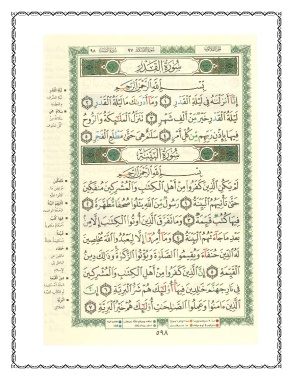 سُورَةُ الْقَدْرِ
بِسْمِ اللَّهِ الرَّحْمَٰنِ الرَّحِيمِ
إِنَّا أَنزَلْنَاهُ فِي لَيْلَةِ الْقَدْرِ ١ وَمَا أَدْرَاكَ مَا لَيْلَةُ الْقَدْرِ ٢
لَيْلَةُ الْقَدْرِ خَيْرٌ مِّنْ أَلْفِ شَهْرٍ ٣ تَنَزَّلُ الْمَلَائِكَةُ وَالرُّوحُ
فِيهَا بِإِذْنِ رَبِّهِم مِّن كُلِّ أَمْرٍ ٤ سَلَامٌ هِيَ حَتَّىٰ مَطْلَعِ الْفَجْرِ ٥
سُورَةُ الْبَيِّنَةِ
بِسْمِ اللَّهِ الرَّحْمَٰنِ الرَّحِيمِ
لَمْ يَكُنِ الَّذِينَ كَفَرُوا مِنْ أَهْلِ الْكِتَابِ وَالْمُشْرِكِينَ مُنفَكِّينَ
حَتَّىٰ تَأْتِيَهُمُ الْبَيِّنَةُ ١ رَسُولٌ مِّنَ اللَّهِ يَتْلُو صُحُفًا مُّطَهَّرَةً ٢
فِيهَا كُتُبٌ قَيِّمَةٌ ٣ وَمَا تَفَرَّقَ الَّذِينَ أُوتُوا الْكِتَابَ إِلَّا مِن
بَعْدِ مَا جَاءَتْهُمُ الْبَيِّنَةُ ٤ وَمَا أُمِرُوا إِلَّا لِيَعْبُدُوا اللَّهَ مُخْلِصِينَ
لَهُ الدِّينَ حُنَفَاءَ وَيُقِيمُوا الصَّلَاةَ وَيُؤْتُوا الزَّكَاةَ وَذَٰلِكَ دِينُ
الْقَيِّمَةِ ٥ إِنَّ الَّذِينَ كَفَرُوا مِنْ أَهْلِ الْكِتَابِ وَالْمُشْرِكِينَ
فِي نَارِ جَهَنَّمَ خَالِدِينَ فِيهَا أُولَٰئِكَ هُمْ شَرُّ الْبَرِيَّةِ ٦ إِنَّ
الَّذِينَ آمَنُوا وَعَمِلُوا الصَّالِحَاتِ أُولَٰئِكَ هُمْ خَيْرُ الْبَرِيَّةِ ٧
٥٩٨